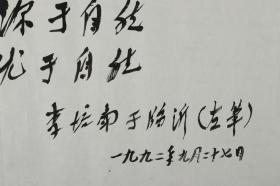 源于自然
光于自然
李培南于临沂(左笔)
一九九二年九月二十七日